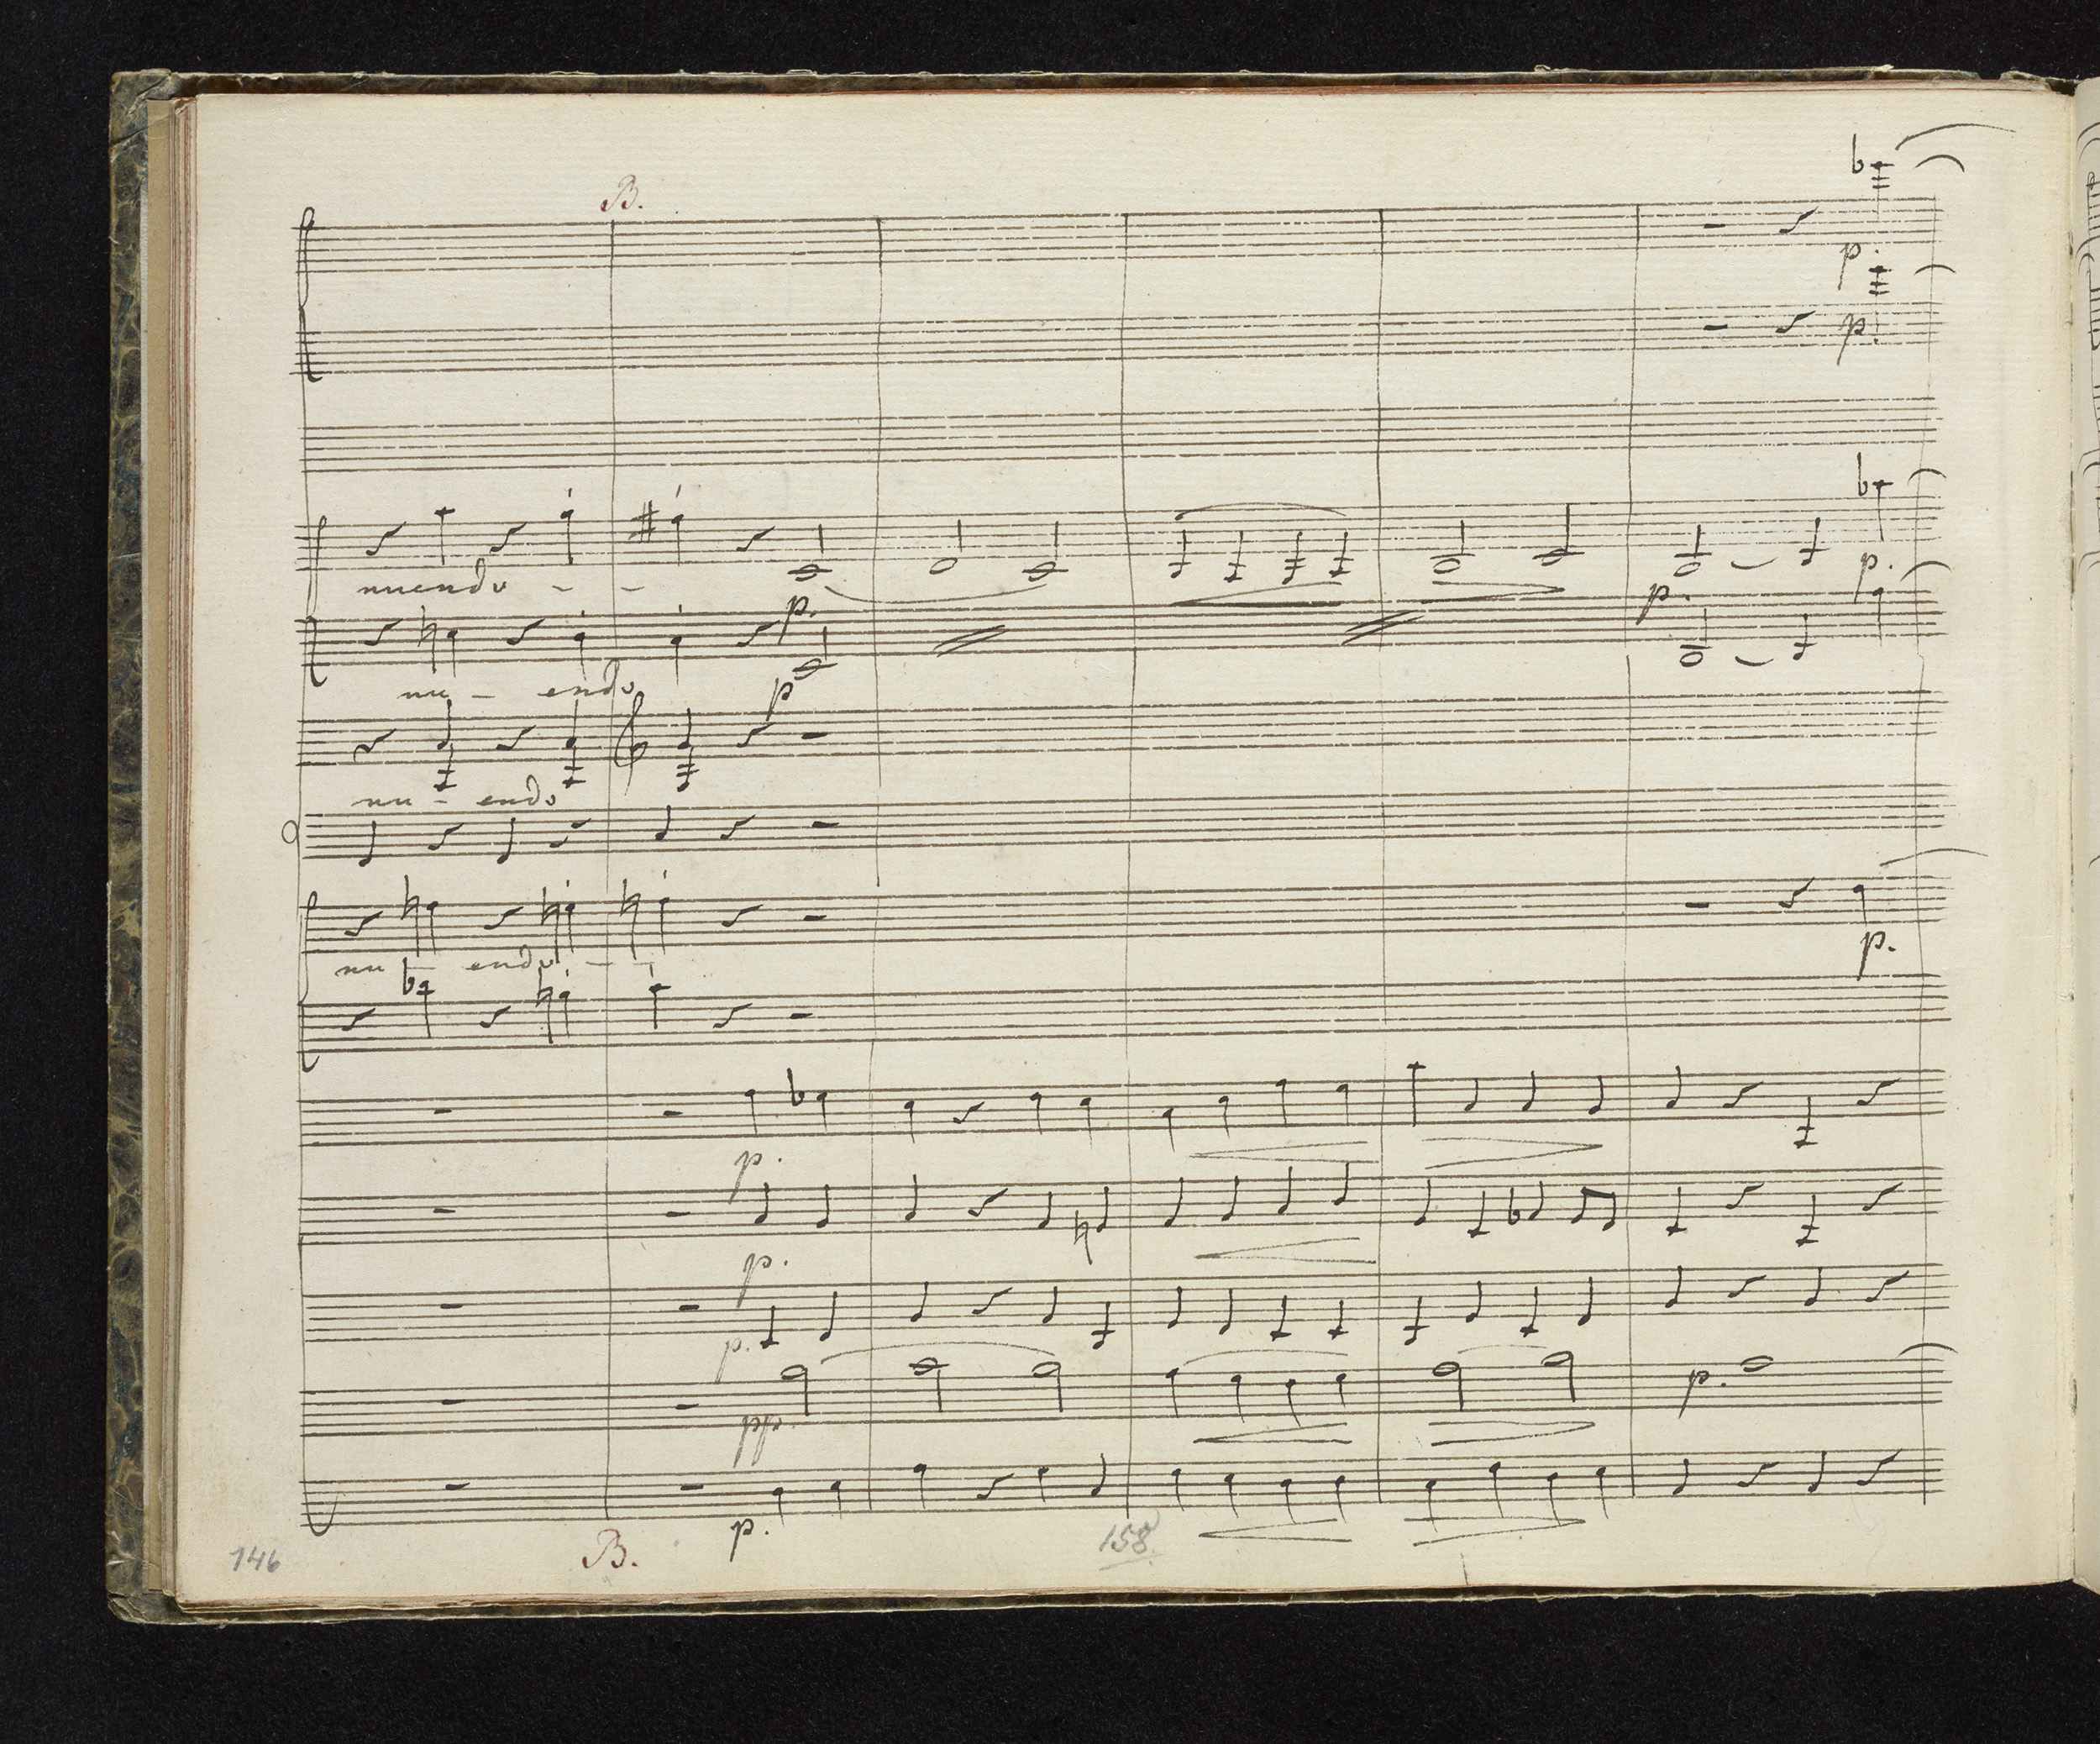 B.
p.
p.
nuendo - -
p. p. p.
nu - endo p
nu - endo
p.
nu - endo - -
p.
p.
p.
pp. p.
p.
146 B. 158